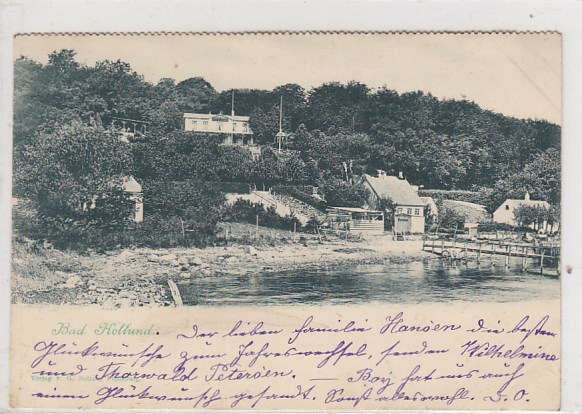 Bad Kollund. Der lieben Familie Hansen die besten
Glückwunsche zum Jahreswechsel, senden Wilhelmine
und Thorwald Petersen. — Boy hat uns auch
einen Glückwunsch gesandt. Sonst alles wohl. D. O.
Verlag